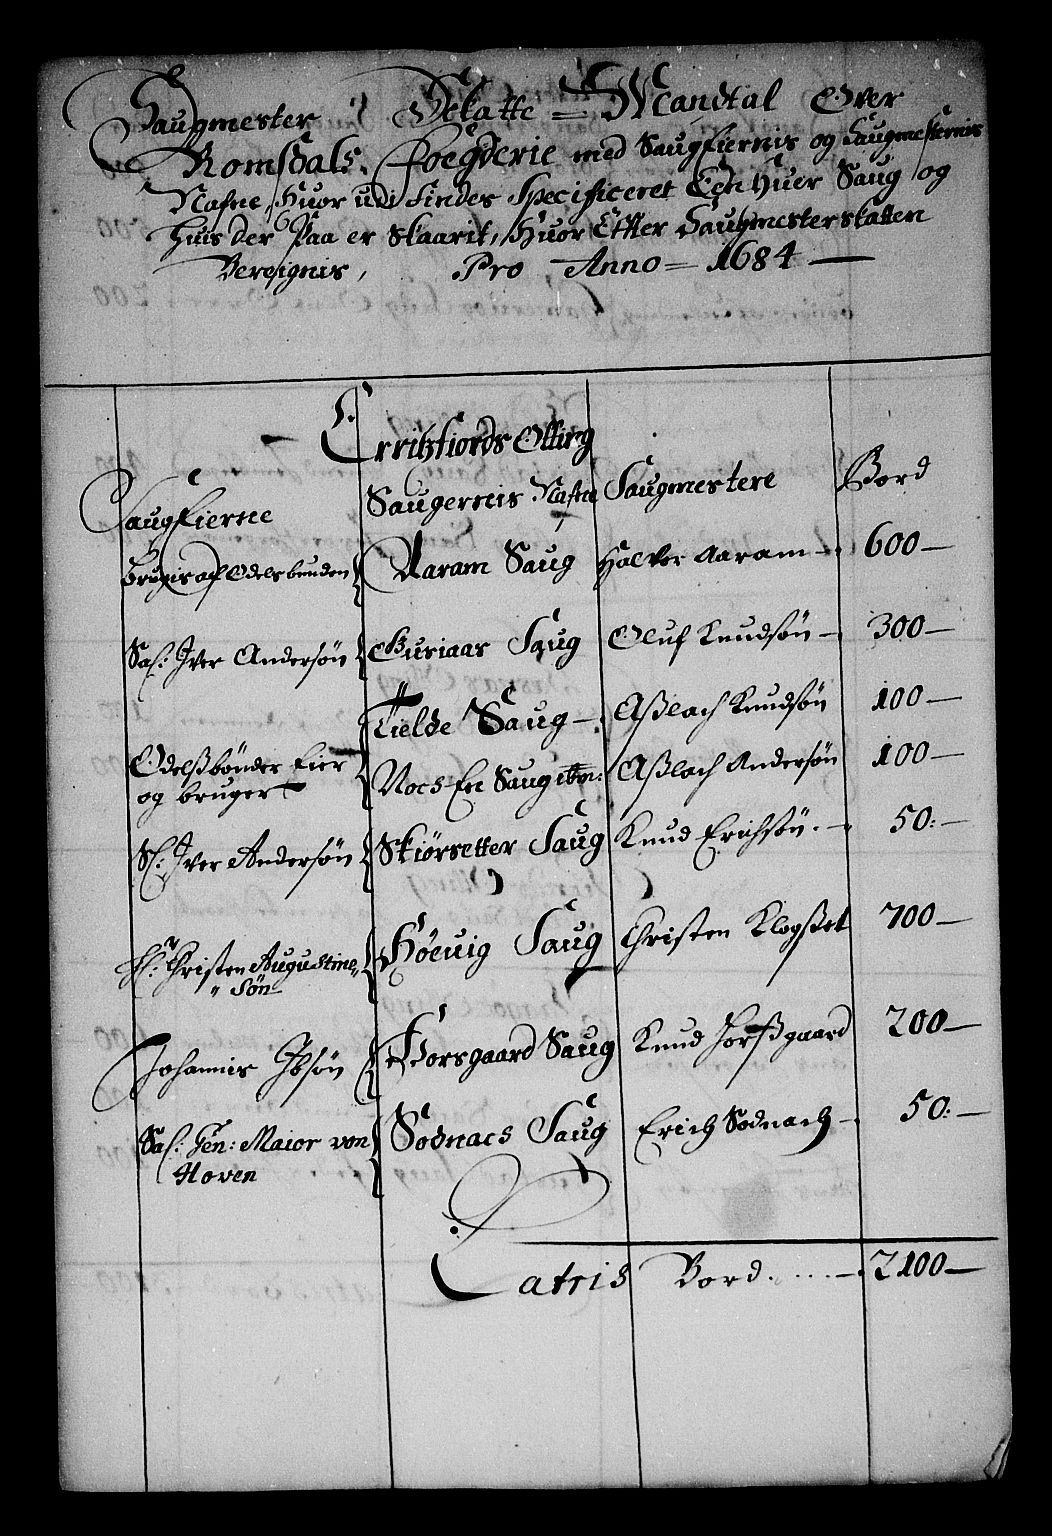 Saugmester Skatte = Mandtal Over
Romsdals Foegderie med Saugeiernis og Saugmesternis
Nafne, Huor udi findes Specificeret Een huer Saug og
Huis der Paa er Skaarit, Huor Efter Saugmesterskatten
Beregnis, Pro Anno = 1684
Erritzfiords Otting
Saugeierne Saugernis Nafne Saugmestere Bord
brugis af Odelsbunden Aaram Saug Halver Aaram 600
Sal: Iver Andersøn Gusiaas Saug Oluf Knudsøn 300
Tielde Saug Aßlach Knudsøn 100
Odelßbønder Eier
og bruger Nocs En Saug ibm: Aßlach Andersøn 100
Sl: Iver Andersøn Skiørsetter Saug Knud Erichsøn 50
Hr: Christen Augustine
Søn Høeuig Saug Christen Klogset 700
Johannis Ibsøn Horsgaard Saug Knud Horßgaard 200
Sal: Gen: Maior von
Hoven Sodnacs Saug Erich Sodnach 50
Latris Bord 2100